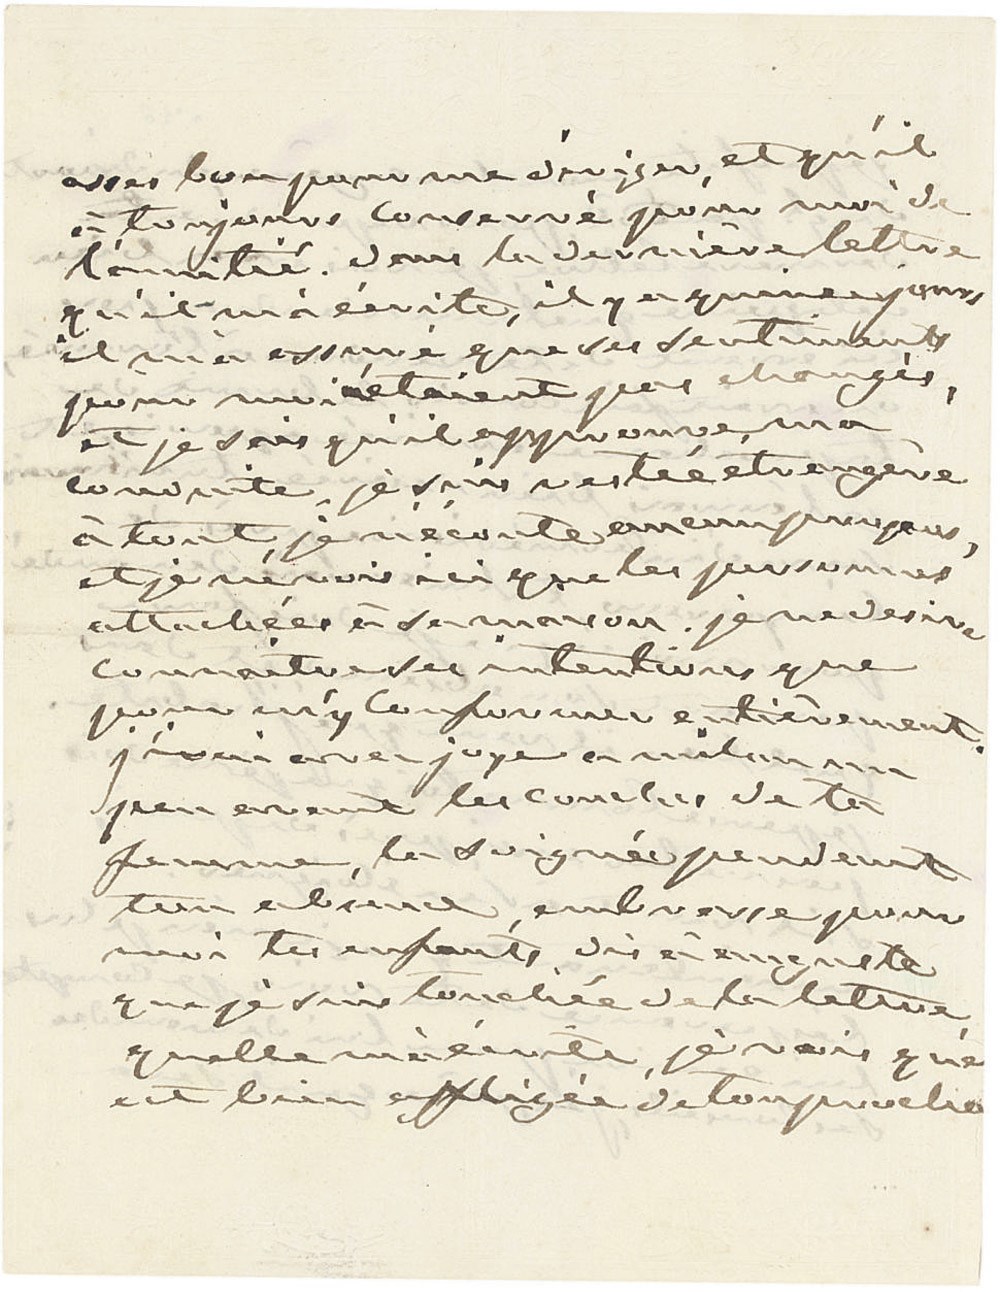 asses bon pour me diriger, et qu'il
à toujours conservé pour moi de
l'amitié. dans la dernière lettre
qu'il m'à écrite, il y a quinze jours
il m'à assuré que ses sentiments
pour moi n'étaient pas changés,
et je sais qu'il approuve, ma
conduite, je suis restée étrangère
à tout, je n'écoute aucun propos,
et je ne vois ici que les personnes
attachées à sa maison. je ne desire
connaitre ses intentions que
pour m'y conformer entièrement.
j'irai avec joye a milan un
peu avant les couches de ta
femme, la soignée pendant
ton absence, embrasse pour
moi tes enfants, dis à auguste
que je suis touchée de la lettre,
quelle m'à écrite, je vois que
est bien affligée de ton prochain